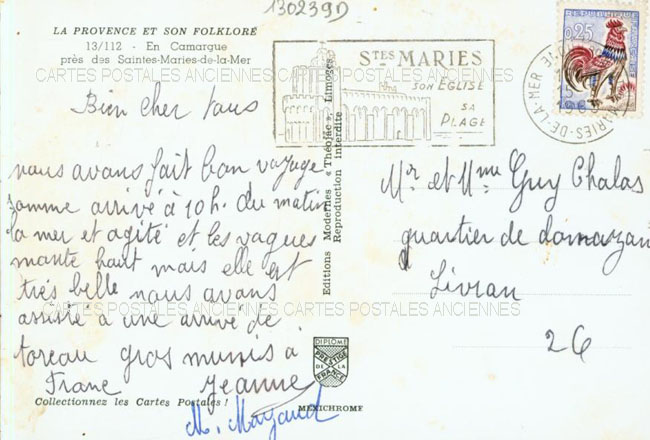 130239D
LA PROVENCE ET SON FOLKLORE
13/112 - En Camargue
près des Saintes-Maries-de-la-Mer
CARTES POSTALES ANCIENNES CARTES POSTALES ANCIENNES
Bien cher tous
nous avons fait bon voyage
somme arrivé à 10h. du matin
la mer et agité et les vagues
monte haut mais elle est
très belle nous avons
assisté a une arrivé de
toreau gros mumis à
Franc Jeanne
M. Mazaud
Collectionnez les Cartes Postales !
Editions Modernes « Théojac », Limoges
Reproduction interdite
DIPLOME
PRESTIGE
DE LA
FRANCE
MEXICHROME
STES MARIES
SON EGLISE
SA
PLAGE
MARIES-DE-LA-MER
0,25
Mr et Mme Guy Chalas
quartier de damazan
Livran
26
CARTES POSTALES ANCIENNES CARTES POSTALES ANCIENNES